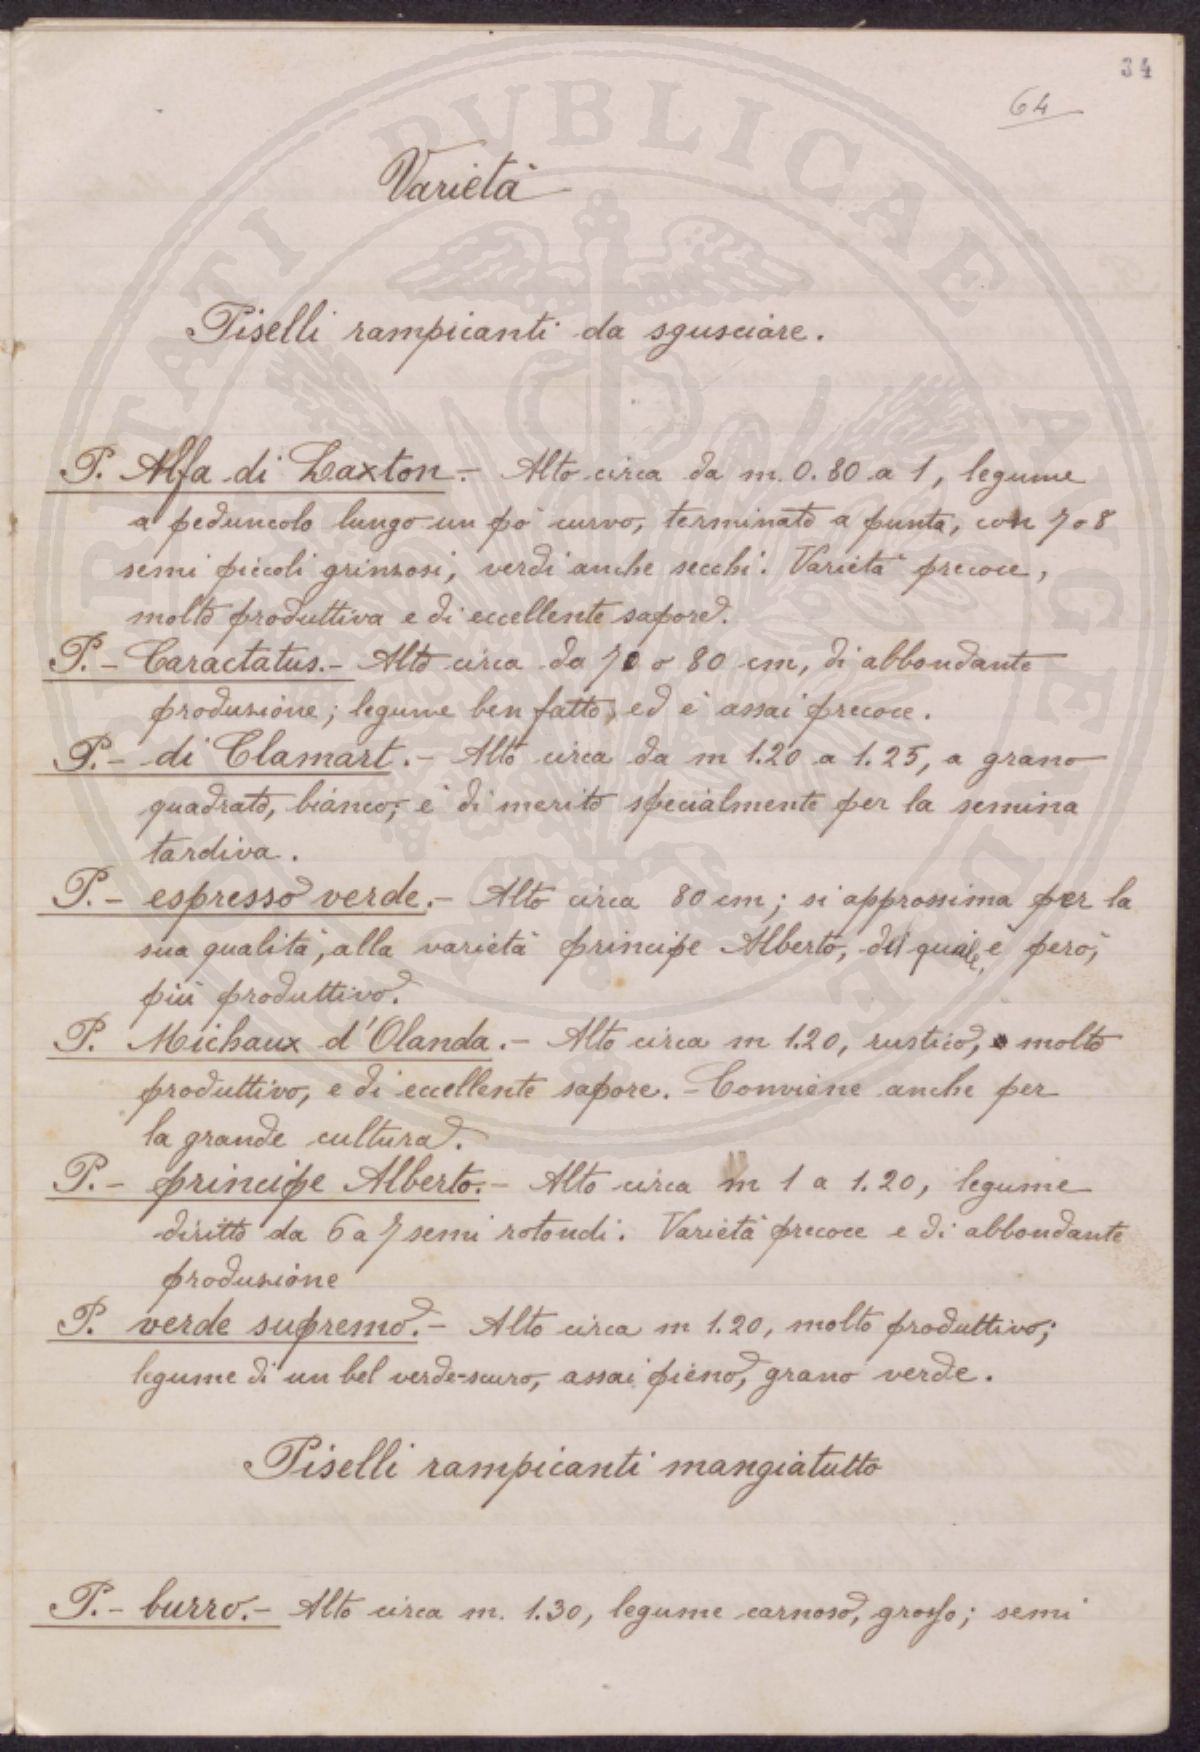 34
64
Varietà
Piselli rampicanti da sgusciare.
P. Alfa di Laxton.- Alto circa da m. 0.80 a 1, legume
a peduncolo lungo un pò curvo, terminato a punta, con 7 o 8
semi piccoli grinzosi, verdi anche secchi. Varietà precoce,
molto produttiva e di eccellente sapore.
P.- Caractatus.- Alto circa da 70 o 80 cm, di abbondante
produzione; legume ben fatto, ed è assai precoce.
P.- di Clamart.- Alto circa da m 1.20 a 1.25, a grano
quadrato, bianco, è di merito specialmente per la semina
tardiva.
P.- espresso verde.- Alto circa 80 cm; si approssima per la
sua qualità, alla varietà principe Alberto, del quale, è però,
più produttivo.
P. Michaux d'Olanda.- Alto circa m 1.20, rustico, molto
produttivo, e di eccellente sapore.- Conviene anche per
la grande cultura.
P.- principe Alberto.- Alto circa m 1 a 1.20, legume
diritto da 6 a 7 semi rotondi. Varietà precoce e di abbondante
produzione
P. verde supremo.- Alto circa m 1.20, molto produttivo;
legume di un bel verde-scuro, assai pieno, grano verde.
Piselli rampicanti mangiatutto
P.- burro.- Alto circa m. 1.30, legume carnoso, grosso; semi